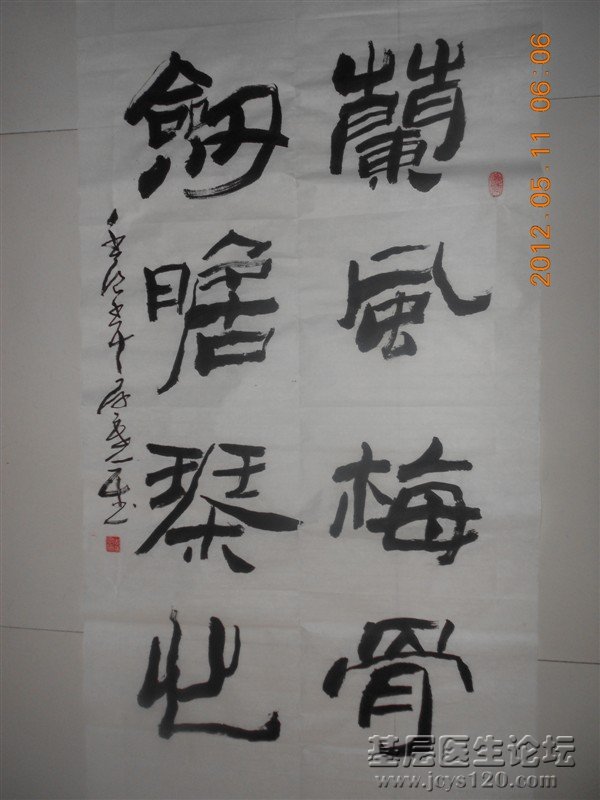 蘭風梅骨
劍膽琴心
2012.05.11 06:06
基层医生论坛
www.jcys120.com